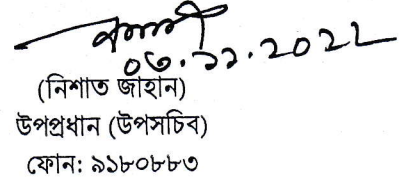 ০৩.১১.২০২২
(নিশাত জাহান)
উপপ্রধান (উপসচিব)
ফোন: ৯১৮০৮৮৩